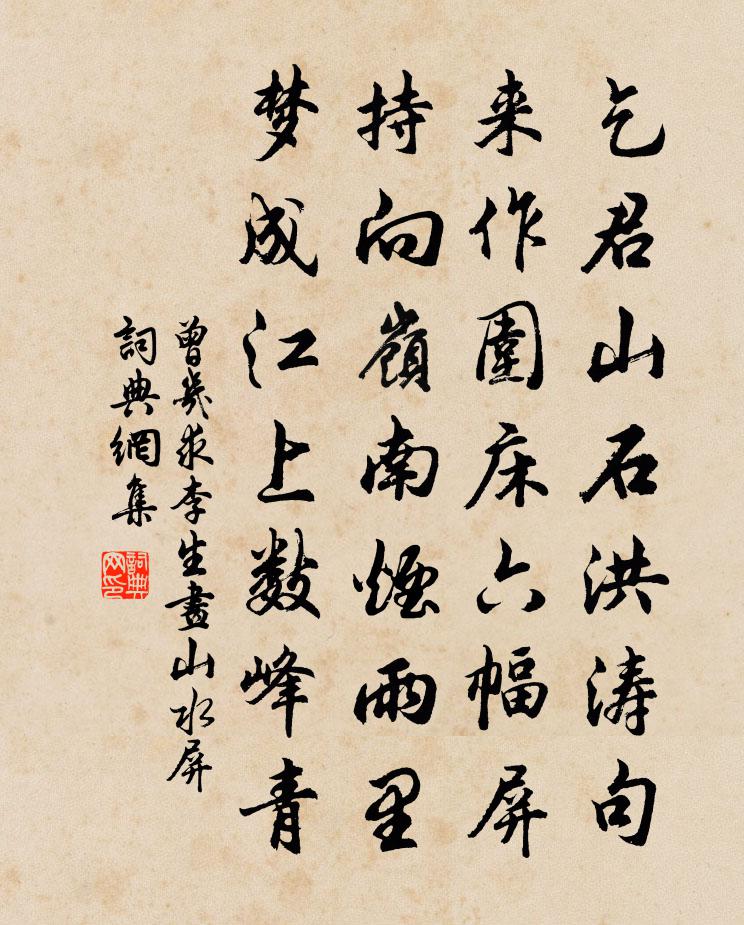 乞君山石洪涛句
来作围床六幅屏
持向嶺南煙雨里
梦成江上数峰青
曾幾求李生畫山水屏
詞典網集
詞典網印